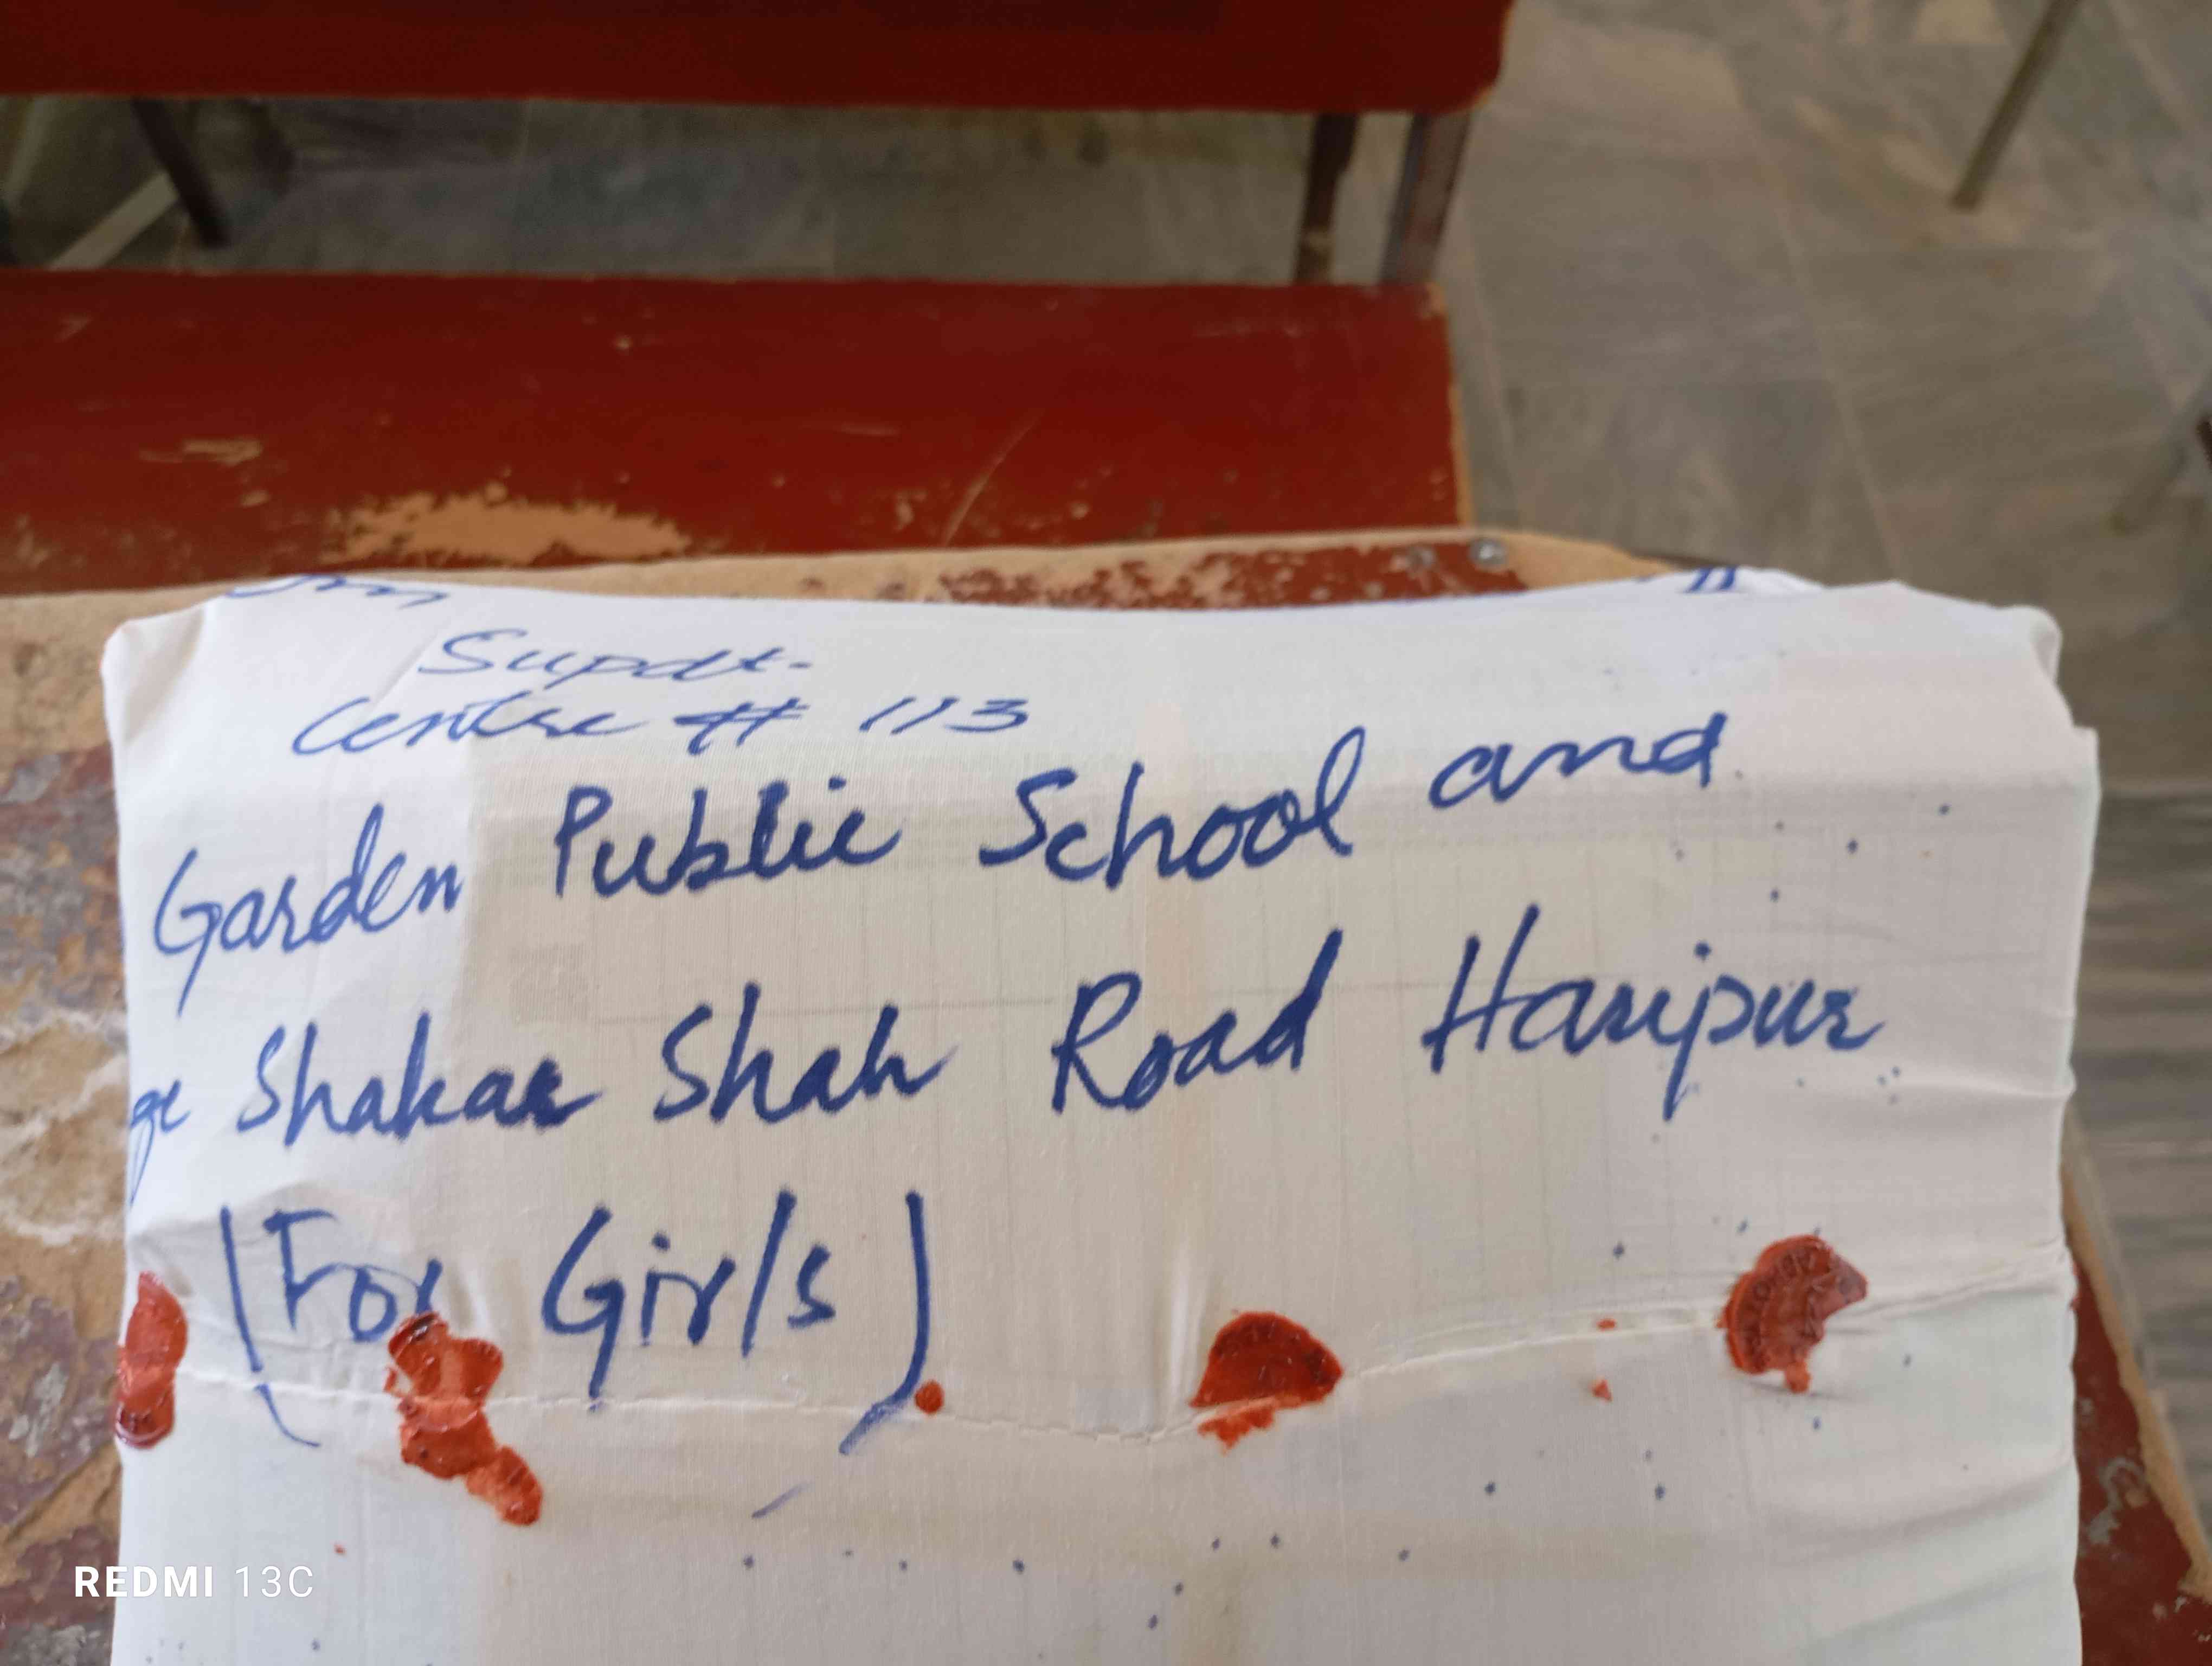 Supdt.
Centre # 113
Garden Public School and
ge Shakar Shah Road Haripur
(For Girls)
REDMI 13C